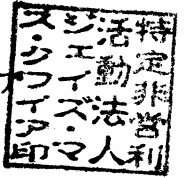 特定非営利
活動法人
ジェイズ・マ
ス・クワイア印